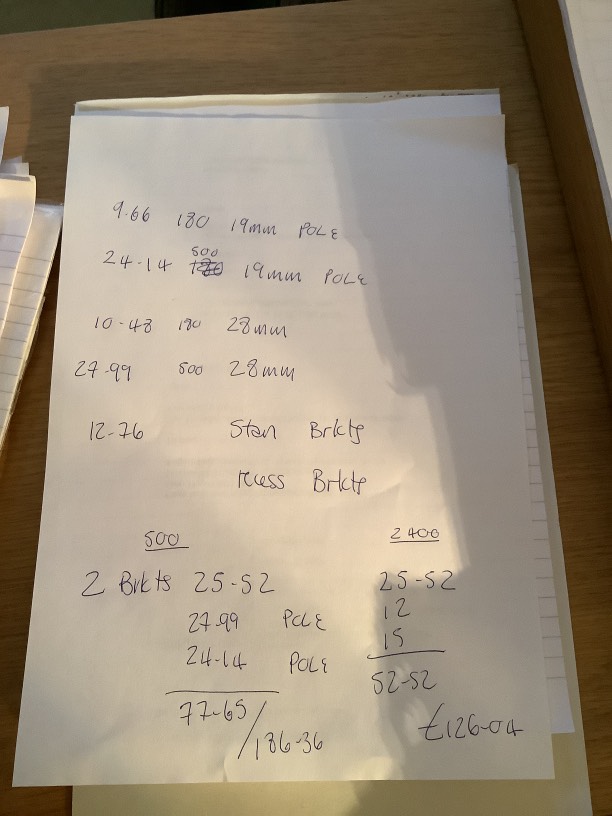 9-66 180 19mm POLE
24-14 500 19mm POLE
10-48 180 28mm
27-99 500 28mm
12-76 Stan Brkts
recess Brkts
500
2 Brkts 25-52
27-99 POLE
24-14 POLE
77-65
/186-36
2400
25-52
12
15
52-52
£126-04